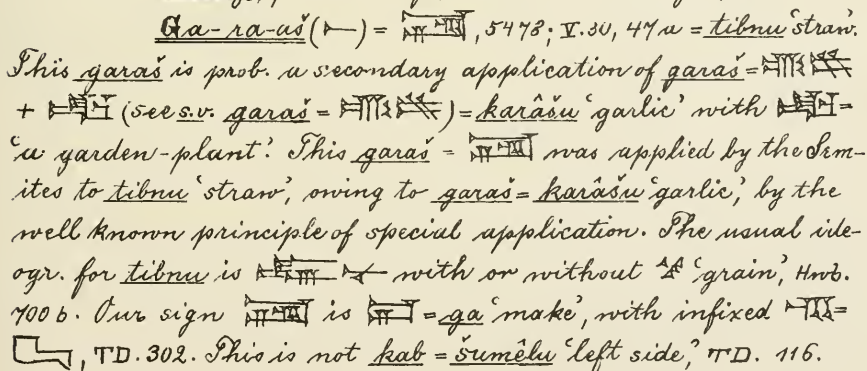 Ga-ra-aš (𒀸) = , 5473; V. 30, 47a = tibnu ‘straw’.
This garaš is prob. a secondary application of garaš =
+ (see s.v. garaš = ) = karâšu ‘garlic’ with =
‘a garden-plant’. This garaš = was applied by the Sem-
ites to tibnu ‘straw’, owing to garaš = karâšu ‘garlic’, by the
well known principle of special application. The usual ide-
ogr. for tibnu is with or without ‘grain’, Hwb.
700 b. Our sign is = ga ‘make’, with infixed =
, TD. 302. This is not kab = šumêlu ‘left side,’ TD. 116.